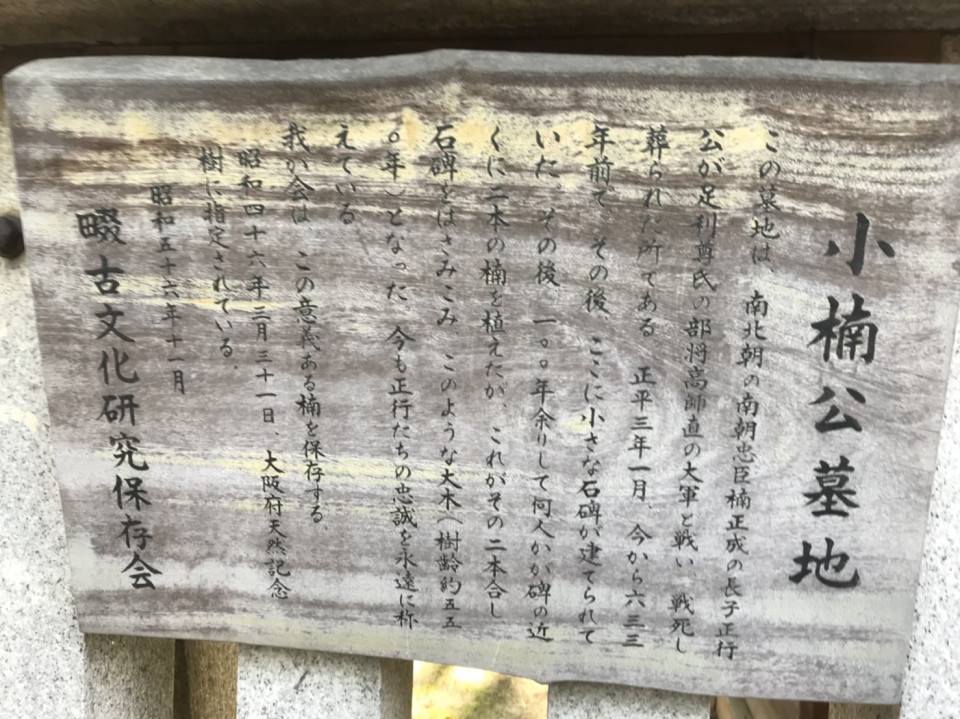 小楠公墓地
この墓地は、南北朝の南朝忠臣楠正成の長子正行
公が足利尊氏の部将高師直の大軍と戦い 戦死し
葬られた所である 正平三年一月、今から六三三
年前で、その後 ここに小さな石碑が建てられて
いた。その後、一〇〇年余りして何人かが碑の近
くに二本の楠を植えたが、これがその二本合し
石碑をはさみこみ このような大木(樹齢約五五
〇年)となった 今も正行たちの忠誠を永遠に称
えている
我が会は この意義ある楠を保存する
昭和四十六年三月三十一日、大阪府天然記念
樹に指定されている.
昭和五十六年十一月
畷古文化研究保存会